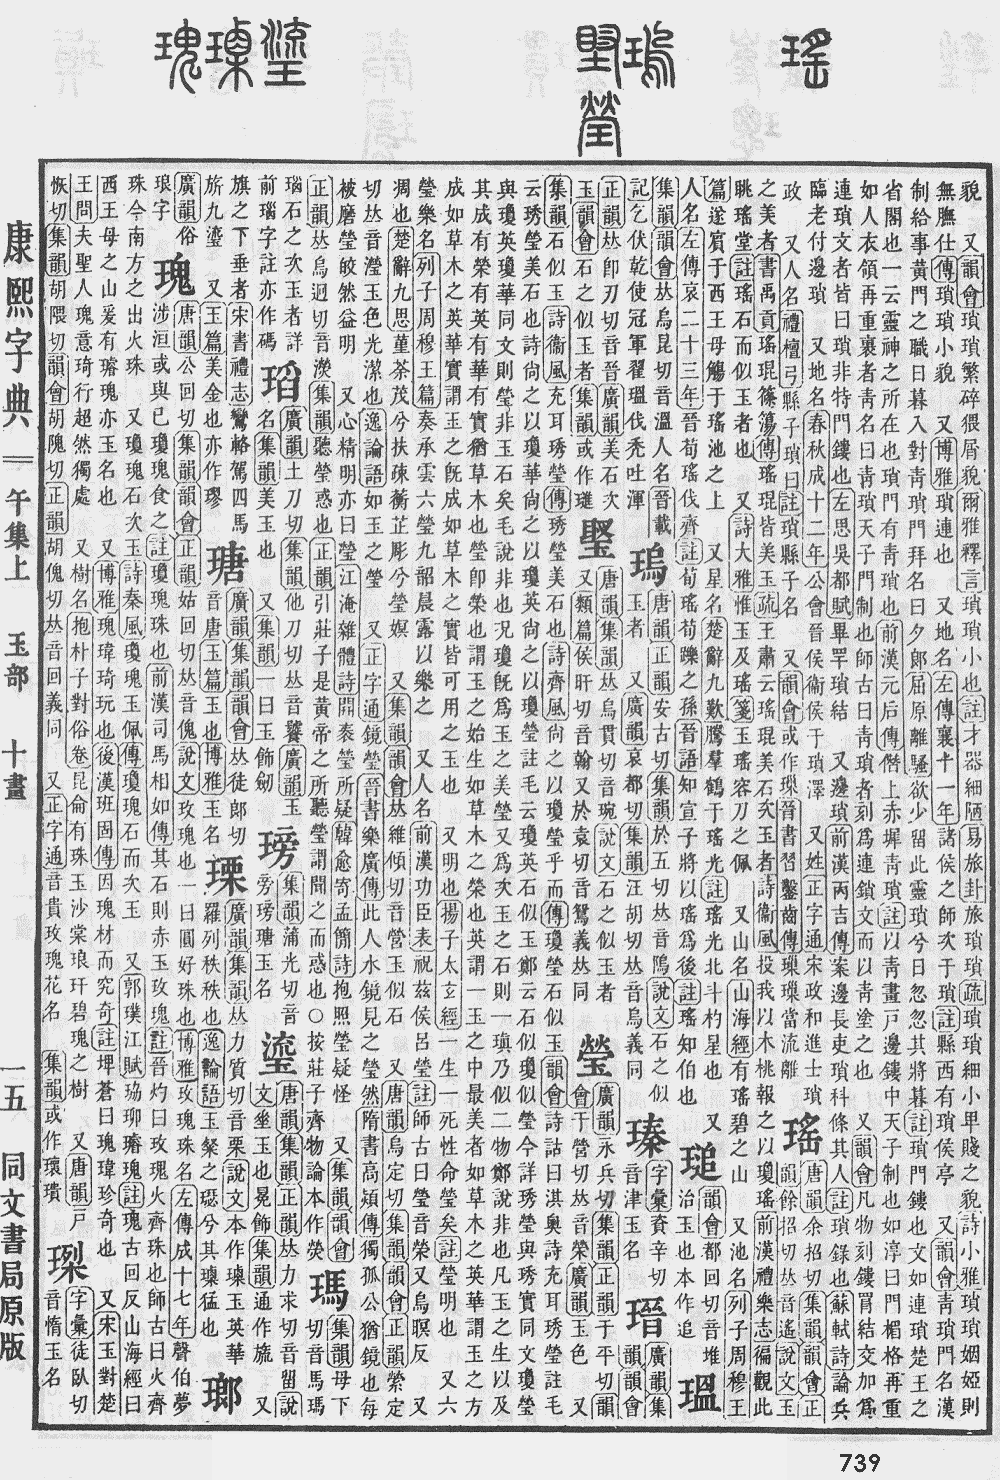 貌　又韻會瑣瑣繁碎猥屑貌爾雅釋言瑣瑣小也註才器細陋易旅卦旅瑣瑣疏瑣瑣細小卑賤之貌詩小雅瑣瑣姻婭則
無膴仕傳瑣瑣小貌　又博雅瑣連也　又地名左傳襄十一年諸侯之師次于瑣註縣西有瑣侯亭　又韻會靑瑣門名漢
制給事黃門之職日暮入對靑瑣門拜名曰夕郞屈原離騷欲少留此靈瑣兮日忽忽其將暮註瑣門鏤也文如連瑣楚王之
省閣也一云靈神之所在也瑣門有靑瑣也前漢元后傳僭上赤墀靑瑣註以靑畫戸邊鏤中天子制也如淳曰門楣格再重
如人衣領再重裏者靑名曰靑瑣天子門制也師古曰靑瑣者刻爲連鎖文而以靑塗之也　又韻會凡物刻鏤罥結交加爲
連瑣文者皆曰瑣非特門鏤也左思吳都賦畢罕瑣結　又邊瑣前漢丙吉傳案邊長吏瑣科條其人註瑣錄也蘇軾詩論兵
臨老付邊瑣　又地名春秋成十二年公會晉侯衞侯于瑣澤　又姓正字通宋政和進士瑣
政　又人名禮檀弓縣子瑣曰註瑣縣子名　又韻會或作璅晉書習鑿齒傳璅璅當流離
瑤
唐韻余招切集韻韻會正
韻餘招切𠀤音遙說文玉
之美者書禹貢瑤琨篠簜傳瑤琨皆美玉疏王肅云瑤琨美石次玉者詩衞風投我以木桃報之以瓊瑤前漢禮樂志徧觀此
眺瑤堂註瑤石而似玉者也　又詩大雅惟玉及瑤箋玉瑤容刀之佩　又山名山海經有瑤碧之山　又池名列子周穆王
篇遂賓于西王母觴于瑤池之上　又星名楚辭九歎騰羣鶴于瑤光註瑤光北斗杓星也　又
人名左傳哀二十三年晉荀瑤伐齊註荀瑤荀躒之孫晉語知宣子將以瑤爲後註瑤知伯也
韻會都回切音堆
治玉也本作追
瑥
集韻韻會𠀤烏昆切音溫人名晉載
記乞伏乾使冠軍翟瑥伐禿吐渾
瑦
唐韻正韻安古切集韻於五切𠀤音隖說文石之似
玉者　又廣韻哀都切集韻汪胡切𠀤音烏義同
瑧
字彙資辛切
音津玉名
瑨
廣韻集
韻韻會
正韻𠀤卽刃切音晉廣韻美石次
玉韻會石之似玉者集韻或作璡
唐韻集韻𠀤烏貫切音琬說文石之似玉者
又類篇侯旰切音翰又於袁切音鴛義𠀤同
瑩
廣韻永兵切集韻正韻于平切韻
會于營切𠀤音榮廣韻玉色　又
集韻石似玉詩衞風充耳琇瑩傳琇瑩美石也詩齊風尙之以瓊瑩乎而傳瓊瑩石似玉韻會詩詁曰淇奧詩充耳琇瑩註毛
云琇瑩美石也於齊詩尙之以瓊華尙之以瓊英尙之以瓊瑩註毛云瓊英石似玉鄭云石似瓊似瑩今詳琇瑩與琇實同文瓊瑩
與瓊英瓊華同文則瑩非玉石矣毛說非也況瓊旣爲玉之美瑩又爲次玉之石則一瑱乃似二物鄭說非也凡玉之生以及
其成有榮有英有華有實猶草木也瑩卽榮也謂玉之始生如草木之榮也英謂一玉之中最美者如草木之英華謂玉之方
成如草木之英華實謂玉之旣成如草木之實皆可用之玉也　又明也揚子太玄經一生一死性命瑩矣註瑩明也　又六
瑩樂名列子周穆王篇奏承雲六瑩九韶晨露以樂之　又人名前漢功臣表祝茲侯呂瑩註師古曰瑩音榮又烏暝反
凋也楚辭九思菫荼茂兮扶疎蘅芷彫兮瑩嫇　又集韻韻會𠀤維傾切音營玉似石　又唐韻烏定切集韻韻會正韻縈定
切𠀤音瀅玉色光潔也逸論語如玉之瑩　又正字通鏡瑩晉書樂廣傳此人水鏡見之瑩然隋書高熲傳獨孤公猶鏡也每
被磨瑩皎然益明　又心精明亦曰瑩江淹雜體詩開泰瑩所疑韓愈寄孟簡詩抱照瑩疑怪　又集韻韻會母下
正韻𠀤烏迥切音濙集韻聽瑩惑也正韻引莊子是黃帝之所聽瑩謂聞之而惑也○按莊子齊物論本作熒
瑪
集韻母下
切音馬瑪
瑙石之次玉者詳
前瑙字註亦作碼
瑫
廣韻土刀切集韻他刀切𠀤音饕廣韻玉
名集韻美玉也　又集韻一曰玉飾劒
瑺
集韻蒲光切音
旁瑺瑭玉名
瑬
唐韻集韻正韻𠀤力求切音畱說
文垂玉也冕飾集韻通作旒　又
旗之下垂者宋書禮志鸞輅駕四馬
旂九瑬　又玉篇美金也亦作璆
瑭
廣韻集韻韻會𠀤徒郞切
音唐玉篇玉也博雅玉名
瑮
廣韻集韻𠀤力質切音栗說文本作璪玉英華
羅列秩秩也逸論語玉粲之璱兮其瑮猛也
瑯
廣韻俗
琅字
瑰
唐韻公回切集韻韻會正韻姑回切𠀤音傀說文玫瑰也一曰圓好珠也博雅玫瑰珠名左傳成十七年聲伯夢
涉洹或與已瓊瑰食之註瓊瑰珠也前漢司馬相如傳其石則赤玉玫瑰註晉灼曰玫瑰火齊珠也師古曰火齊
珠今南方之出火珠　又瓊瑰石次玉詩秦風瓊瑰玉佩傳瓊瑰石而次玉　又郭璞江賦珕珋璿瑰註瑰古回反山海經曰
西王母之山爰有璿瑰亦玉名也　又博雅瑰瑋琦玩也後漢班固傳因瑰材而究奇註埤蒼曰瑰瑋珍奇也　又宋玉對楚
王問夫聖人瑰意琦行超然獨處　又樹名抱朴子對俗卷昆侖有珠玉沙棠琅玕碧瑰之樹　又唐韻戸
恢切集韻胡隈切韻會胡隗切正韻胡傀切𠀤音回義同　又正字通音貴玫瑰花名　集韻或作瓌璝
字彙徒臥切
音惰玉名
康熙字典
午集上
玉部
十畫
一五
同文書局原版
739